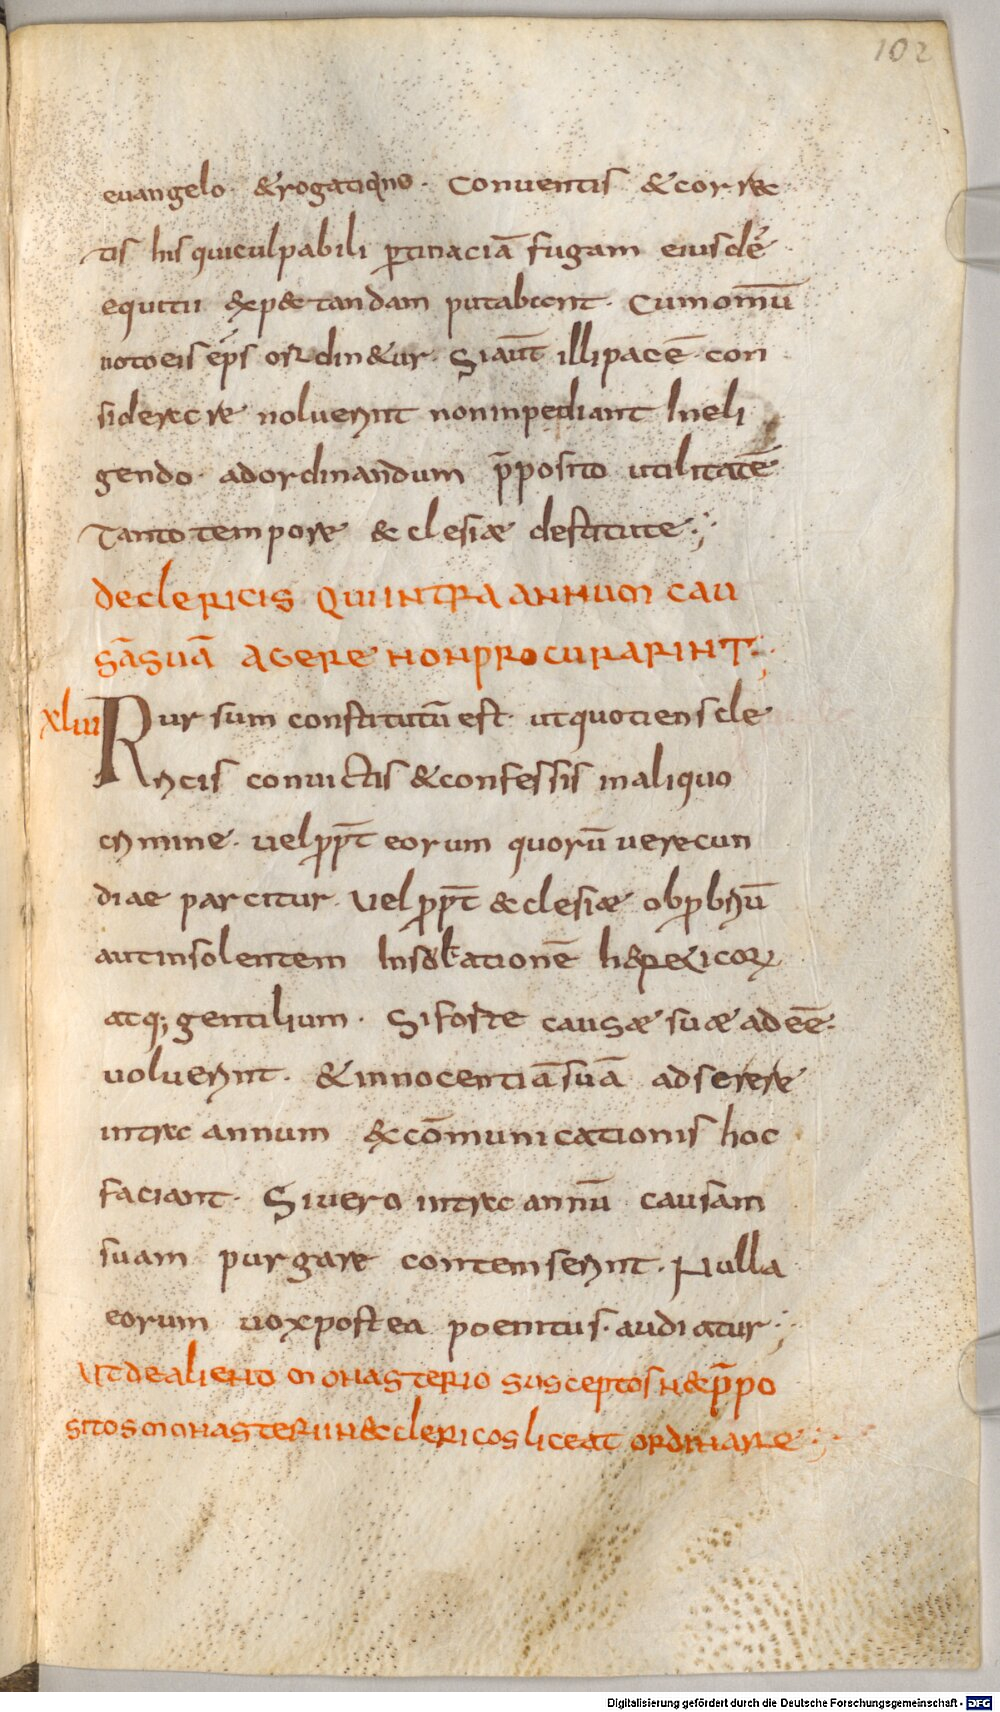 102
euangelo · &rogatiqno · Conuentis & correc
tis his quiculpabili ꝑtinaciā fugam eiusdē
equitii &xp&tandam putabant · Cumomū
uotoeis ep̄s ordin&ur · Siaūt illipacē con
siderare noluerint noninpediant Ineli
gendo · adordinandum p̄posito utilitatē
Tanto tempore &clesiæ destitute ;
declericis qui intra annum cau
sāsuā agere nonprocurarint ;
xlui Rursum constitutū est · utquotiens cle
ricis conuictis &confessis inaliquo
crimine · uelprp̄t eorum quorū uerecun
diae parcitur · uel prp̄t &clesiæ obprbriū
autinsolentem Insultationē h&re&icoꝝ
atq; gentilium · Siforte causæ suæ adeē ·
uoluerint · &innocentiāsuā adserere
intra annum &cōmunicationis hoc
faciant · Siuero intra annū causam
suam purgare contemserint · Nulla
eorum uoxpostea poenitus · audiatur ;
Utdealieno monasterio susceptos n&p̄po
sitos monasterii n&clericos liceat ordinare ;
Digitalisierung gefördert durch die Deutsche Forschungsgemeinschaft - DFG